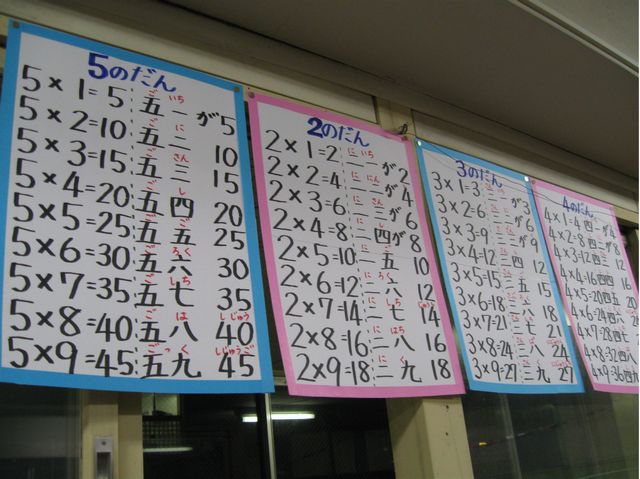 5のだん
ごいち
5×1=5 五一が5
ごに
5×2=10 五二 10
ごさん
5×3=15 五三 15
ごし
5×4=20 五四 20
ごご
5×5=25 五五 25
ごろく
5×6=30 五六 30
ごしち
5×7=35 五七 35
ごは しじゅう
5×8=40 五八 40
ごっく しじゅうご
5×9=45 五九 45
2のだん
にいち
2×1=2 二一が2
2×2=4 二二が4
にさん
2×3=6 二三が6
にし
2×4=8 二四が8
にご
2×5=10 二五 10
にろく
2×6=12 二六 12
にしち じゅうし
2×7=14 二七 14
にはち
2×8=16 二八 16
にく
2×9=18 二九 18
3のだん
3×1=3 三一が3
3×2=6 三二が6
3×3=9 三三が9
3×4=12 三四 12
3×5=15 三五 15
3×6=18 三六 18
3×7=21 三七 21
3×8=24 三八 24
3×9=27 三九 27
4のだん
4×1=4 四一が4
4×2=8 四二が8
4×3=12 四三 12
4×4=16 四四 16
4×5=20 四五
4×6=24 四六
4×7=28 四七
4×8=32 四八
4×9=36 四九